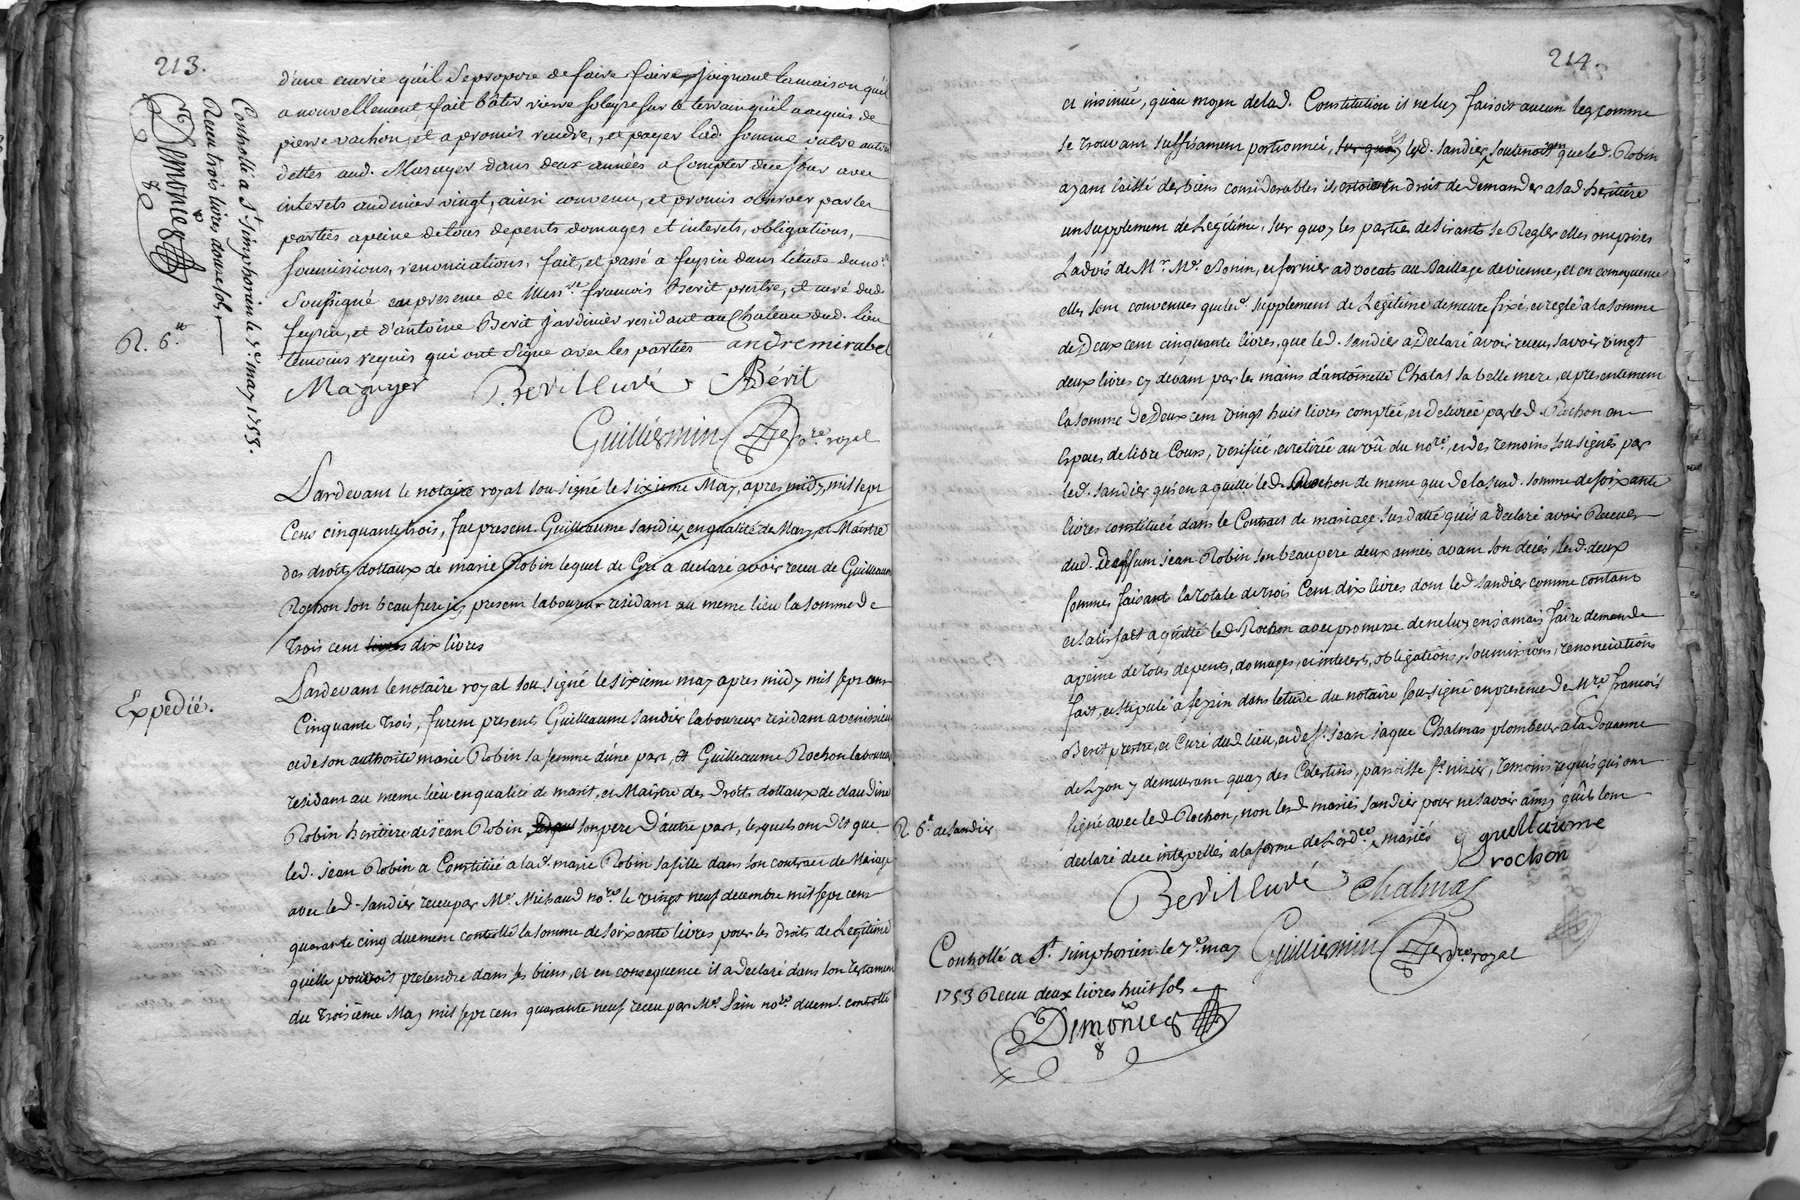 213.
d'une ecurie qu'il se propose de faire faire joignant la maison qu'il
a nouvellement fait bâtir rierre soleyse sur le terrain qu'il a acquis de
pierre vachon, et a promis rendre, et payer lad. somme outre autres
dettes aud. Mazuyer dans deux années a Compter de ce jour avec
interets au denier vingt, ainsi convenu, et promis observer par les
parties a peine de tous depents domages et interets, obligations,
soumissions, renonciations, fait, et passé a feysin dans l'étude du no.re
soussigné en presence de Mess.re francois Berit prestre, et curé dud.
feysin, et d'antoine Berit jardinier residant au Chateau dud. lieu
temoins requis qui ont signé avec les parties andre mirabel
Mazuyer Berit Curé ABérit
Guilliermin no.re royal
R. 6.te
Controllé a S.t simphorien le 7.e may 1753.
Receu trois livres douze sols
Demonïe
Pardevant le notaire royal soussigné le sixieme May, apres midy, mil sept
Cens cinquante trois, fut present Guilleaume sandier en qualité de Mary, et Maistre
des droits dottaux de marie Robin lequel de Gré a declaré avoir receu de Guilleaume
Rochon son beaufrere icy present laboureur residant au meme lieu la somme de
trois cent livres dix livres
Expedié.
Pardevant le notaire royal soussigné le sixieme may apres midy mil sept cent
Cinquante trois, furent presents Guilleaume sandier laboureur residant a venissieu
et de son authorité marie Robin sa femme d'une part, et Guilleaume Rochon laboureur
residant au meme lieu en qualité de marit, et Maistre des Droits dottaux de claudine
Robin heritiere de jean Robin son pere D'autre part, lesquels ont dit que
led. jean Robin a Constitué a la d. marie Robin sa fille dans son contract de Mariage
avec led. sandier receu par M.e Michaud no.re le vingt neuf decembre mil sept cent
quarante cinq duement controllé la somme de soixante livres pour les droits de Legitime
qu'elle pouvoit pretendre dans ses biens, et en consequence il a declaré dans son testament
du troisième May mil sept cens quarante neuf receu par M.e Pain no.re duem.t controllé
214.
et insinué, qu'au moyen de lad. Constitution il ne luy faisoit aucun leg comme
se trouvant suffisament portionnée, sur quoy led. sandier soutenoit que led. Robin
ayant laissé des biens considerables ils etoient en droit de demander a sad. heritiere
un supplement de Legitime, sur quoy les parties desirants se Regler elles ont prises
L'advis de M.r M.e Bonin, et fornier advocats au Baillage de vienne, et en consequence
elles sont convenues que le d. supplement de Legitime demeure fixé, et reglé a la somme
de Deux cent cinquante livres, que led. sandier a Declaré avoir receu, savoir vingt
deux livres cy devant par les mains d'antoinette Chalas sa belle mere, et presentement
la somme de Deux cent vingt huit livres comptée, et delivrée par led. Rochon en
Especes de libre Cours, verifiée et retirée au vû du no.re, et des temoins soussignés par
led. sandier qui en a quitté led. Rochon de meme que de la susd. somme de soixante
livres constituée dans le Contract de mariage susdatté qu'il a declaré avoir Receue
dud. Deffunt jean Robin son beaupere deux années avant son decés, lesd. deux
sommes faisant la totale de trois Cent dix livres dont led. sandier comme contant
et satisfait a quitté led. Rochon avec promesse de ne luy en jamais faire demande
a peine de tous depents, domages, et interets, obligations, soumissions, renonciations
fait, et stipulé a feysin dans l'etude du notaire soussigné en presence de M.re francois
Berit prestre, et Curé dud. lieu, et de s.r jean jaque Chalmas plombeur a la Douanne
de Lyon y demeurant quay des Celestins, paroisse S.t nizier, temoins requis qui ont
signé avec led. Rochon, non lesd. mariés sandier pour ne savoir ainsy qu'ils l'ont
declaré de ce interpellés a la forme de L'ord.ce mariés guilleaume
rochon
R. 6.te de sandier
Berit Curé Chalmas
Guilliermin no.re royal
Controllé a S.t simphorien le 7.e may
1753 Receu deux livres huit sols
Demonïe